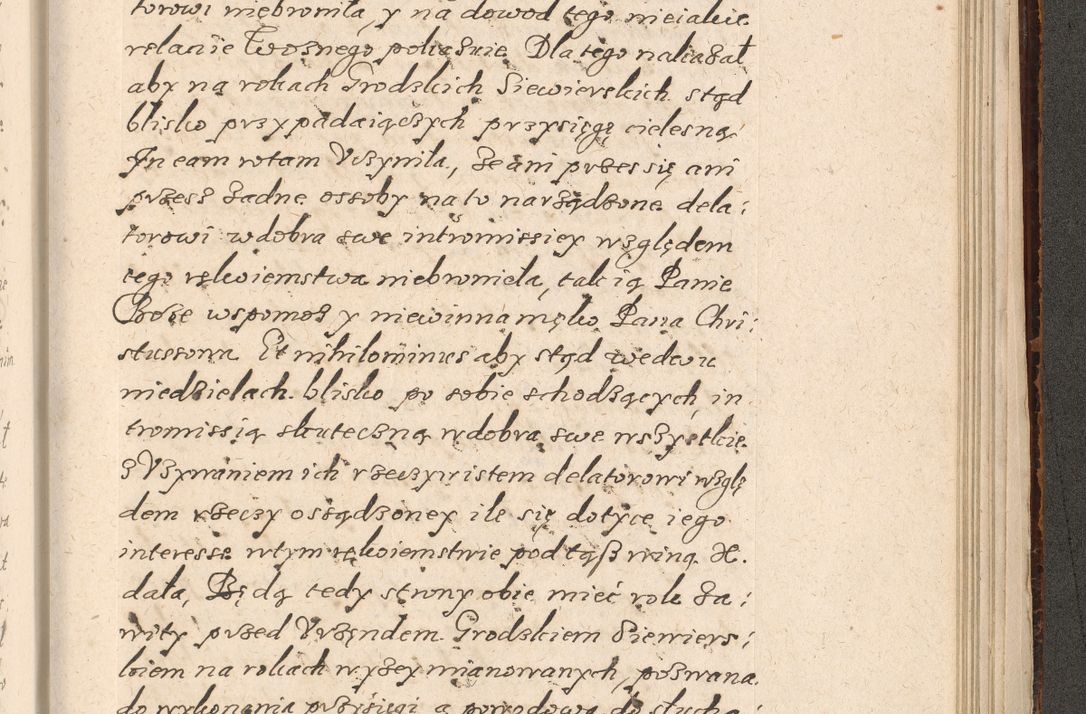 torowi niebroniła, y na dowod tego nieiakie
relacie Woznego pokazuie. Dla tego nakazał
aby na rokach Grodzkich Siewierskich stąd
blisko przypadaiączych przysięgę cielesną
In eam rotam Vczyniła, że ani przes się ani
przesz żadne ossoby na to narządzone dela:
torowi w dobra swe intromissiey względem
tego rękoiemstwa niebroniela, tak ią Panie
Boże wspomoż y niewinna męko Pana Chri:
stussowa. Et nihilominus aby stąd we dwu
niedzielach blisko po sobie schodzących, in
tromissią skuteczną w dobra swe wszystkie
z Vzywaniem ich rzeczywistem delatorowi wzglę
dem rzeczy osządzoney ile się dotyce iego
interesse w tym rękoiemstwie pod tąsz winą X.
dała, Będą tedy strony obie mieć rok za:
wity przed Vrzęndem Grodzkiem Siewiers:
kiem na rokach wyżey mianowanych, pozwana
do wykonania przysięgi a powodowa do słucha: